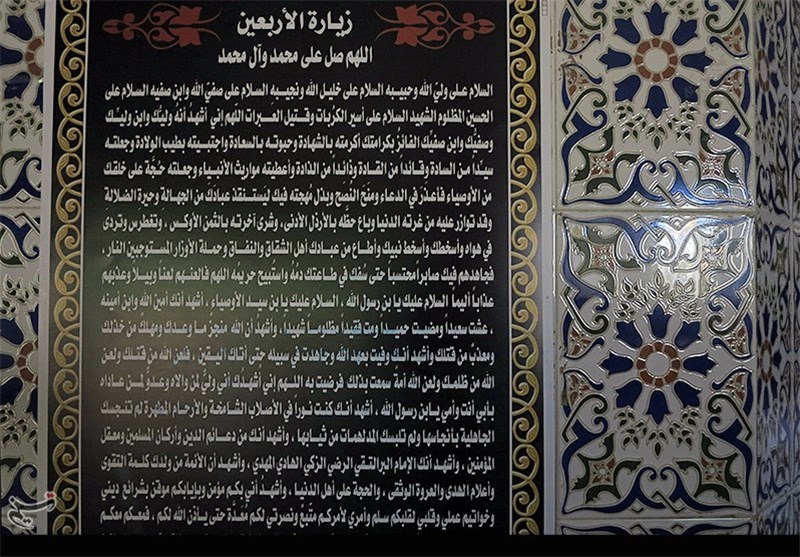 زيارة الأربعين
اللهم صل على محمد وآل محمد
السلام على وليّ الله وحبيبه السلام على خليل الله ونجيبه السلام على صفيّ الله وابن صفيه السلام على
الحسين المظلوم الشهيد السلام على أسير الكربات وقتيل العبرات اللهم اني أشهدُ أنّه وليّك وابن وليّك
وصفيّك وابن صفيّك الفائزُ بكرامتك أكرمته بالشهادة وحبوته بالسعادة واجتبيته بطيب الولادة وجعلته
سيّداً من السادة وقائداً من القادة وذائداً من الذادة وأعطيته مواريث الأنبياء وجعلته حُجّة على خلقك
من الأوصياء فأعذرَ في الدعاء ومنَحَ النُصح وبذل مُهجته فيك ليَستنقذ عبادكَ من الجهالة وحيرة الضلالة
وقد توازر عليه من غرته الدنيا وباع حظّه بالأرذل الأدنى، وشرى آخرته بالثمن الأوكس، وتغطرس وتردى
في هواه وأسخطك وأسخط نبيك وأطاع من عبادك أهل الشقاق والنفاق وحملة الأوزار المستوجبين النار،
فجاهدهم فيك صابرا محتسبا حتى سُفك في طاعتك دمه واستبيح حريمه اللهم فالعنهم لعنا وبيلا وعذبهم
عذابا أليما السلام عليك يا بن رسول الله، السلام عليك يا بن سيد الأوصياء، أشهد أنك أمين الله وابن أمينه
، عشت سعيداً ومضيت حميداً ومت فقيداً مظلوماً شهيداً، وأشهد أن الله منجزٌ ما وعدك ومهلك من خذلك
ومعذبٌ من قتلك وأشهد أنك وفيت بعهد الله وجاهدت في سبيله حتى أتاك اليقين، فلعن الله من قتلك ولعن
الله من ظلمك ولعن الله أمةً سمعت بذلك فرضيت به اللهم إني أشهدُك أني وليٌ لمن والاه وعدوٌ لمن عاداه
بأبي أنت وأمي يا بن رسول الله، أشهد أنك كنت نوراً في الأصلاب الشامخة والأرحام المطهرة لم تنجسك
الجاهلية بأنجاسها ولم تلبسك المدلهمات من ثيابها، وأشهد أنك من دعائم الدين وأركان المسلمين ومعقل
المؤمنين، وأشهد أنك الإمام البر التقي الرضي الزكي الهادي المهدي، وأشهد أن الأئمة من ولدك كلمة التقوى
وأعلام الهدى والعروة الوثقى، والحجة على أهل الدنيا، وأشهد أني بكم مؤمن وبإيابكم موقن بشرائع ديني
وخواتيم عملي وقلبي لقلبكم سلم وأمري لأمركم متبعٌ ونصرتي لكم مُعَدّة حتى يأذن الله لكم، فمعكم معكم